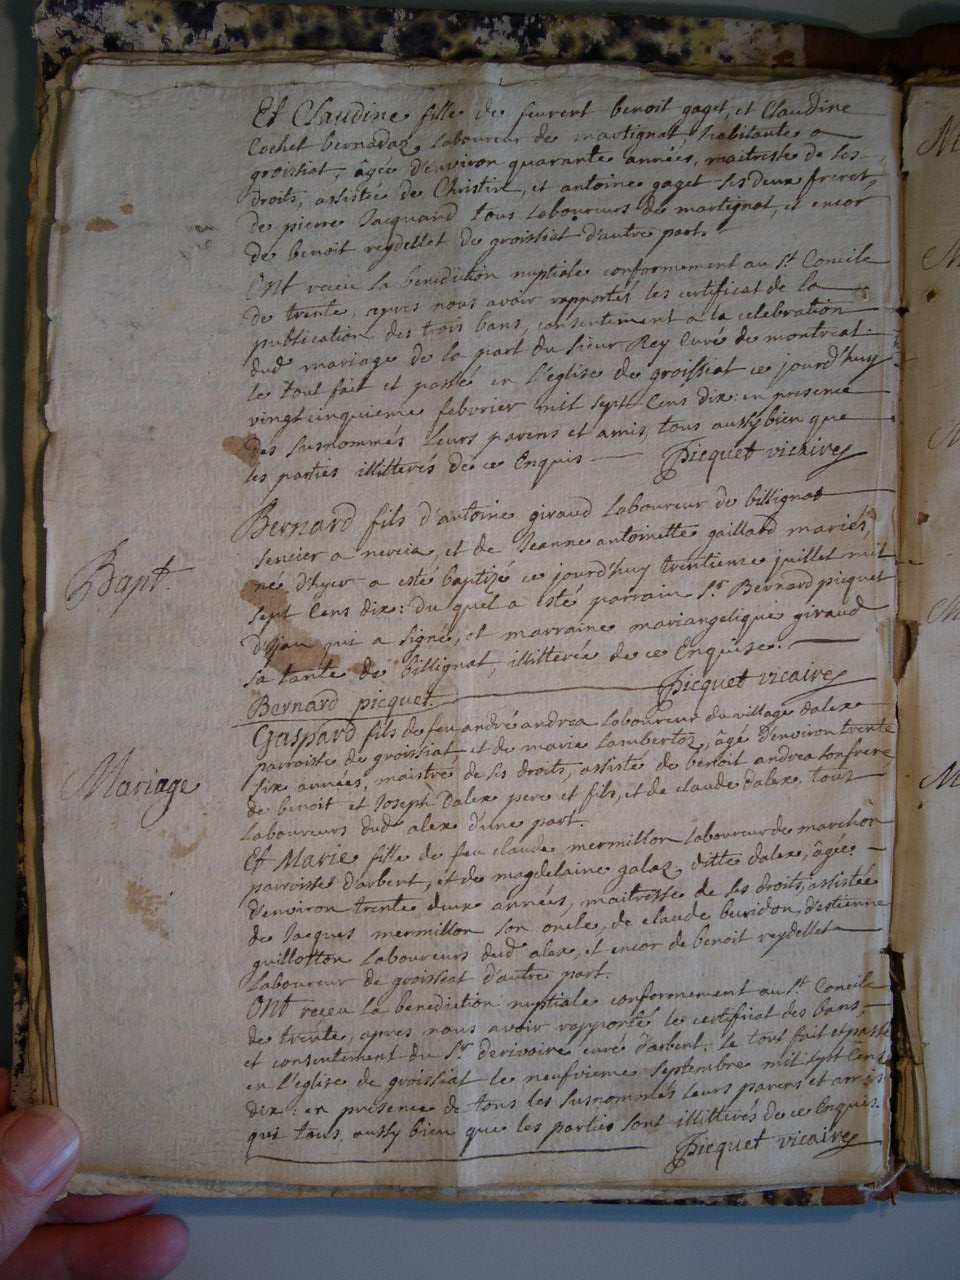 Et Claudine fille de feu benoit gaget, et Claudine
Cochet bernadaz laboureur de martignat habitante a
groissiat, âgée d'environ quarante années, maitresse de ses
droits, assistée de Christin, et antoine gaget ses deux freres,
de pierre Jacquard tous laboureurs de martignat, et encor
de benoit reydellet de groissiat d'autre part.
Ont receu la benediction nuptiale conformement au St Concile
de trente, apres nous avoir rapportés les certificat de la
publication des trois bans, consentement a la celebration
dud mariage de la part du sieur Rey Curé de montreat.
le tout fait et passé en l'église de groissiat ce jourd'huy
vingtcinquieme febvrier mil sept Cens dix: en presence
des susnommés leurs parens et amis, tous aussy bien que
les parties illitterés de ce Enquis Picquet vicaire
Bernard fils d'antoine giraud laboureur de billignat
et de Jeanne antoinette gaillard mariés,
Bapt.
né d'hyer a esté baptizé ce jourd'huy trentieme juillet mil
sept Cens dix: du quel a esté parrain Sr Bernard picquet
qui a signé, et marraine mariangelique giraud
sa tante de billignat, illitterée de ce Enquise.
Bernard picquet. Picquet vicaire
Gaspard fils de feu andré andrea laboureur du village dalex
parroisse de groissiat et de marie Lambertoz, âgé d'environ trente
Mariage
six années, maistre de ses droits, assisté de benoit andrea son frere
de benoit et Joseph Dalex pere et fils, et de claude dalex, tous
laboureurs dud alex d'une part.
Et Marie fille de feu claude mermillon laboureur de marchon
parroisse d'arbent, et de magdelaine galaz ditte dalex, âgée
d'environ trente deux années, maitresse de ses droits, assistée
de Jacques mermillon son oncle, de claude d'estienne
guillotton laboureurs dud alex, et encor de benoit reydellet
laboureur de groissiat d'autre part.
Ont receu la benediction nuptiale conformement au St Concile
de trente, apres nous avoir rapporté le certificat des bans,
et consentement du Sr derivoire curé d'arbent: le tout fait et passé
en l'église de groissiat le neufvieme septembre mil sept Cens
dix: en presence de tous les susnommés leurs parens et amis
qui tous aussy bien que les parties sont illitterés de ce Enquis.
Picquet vicaire